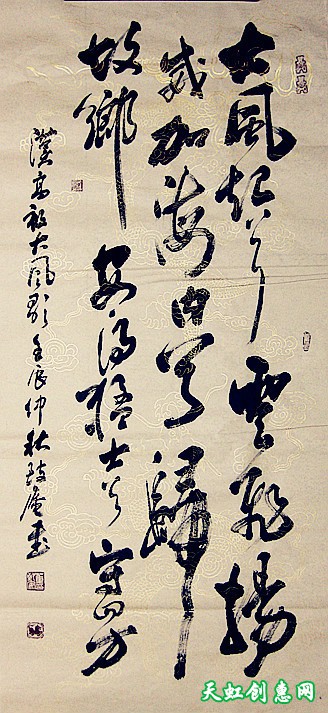 大風起兮雲飛揚
威加海内兮歸
故鄉安得猛士兮守四方
漢高祖大風歌壬辰仲秋
天虹创惠网